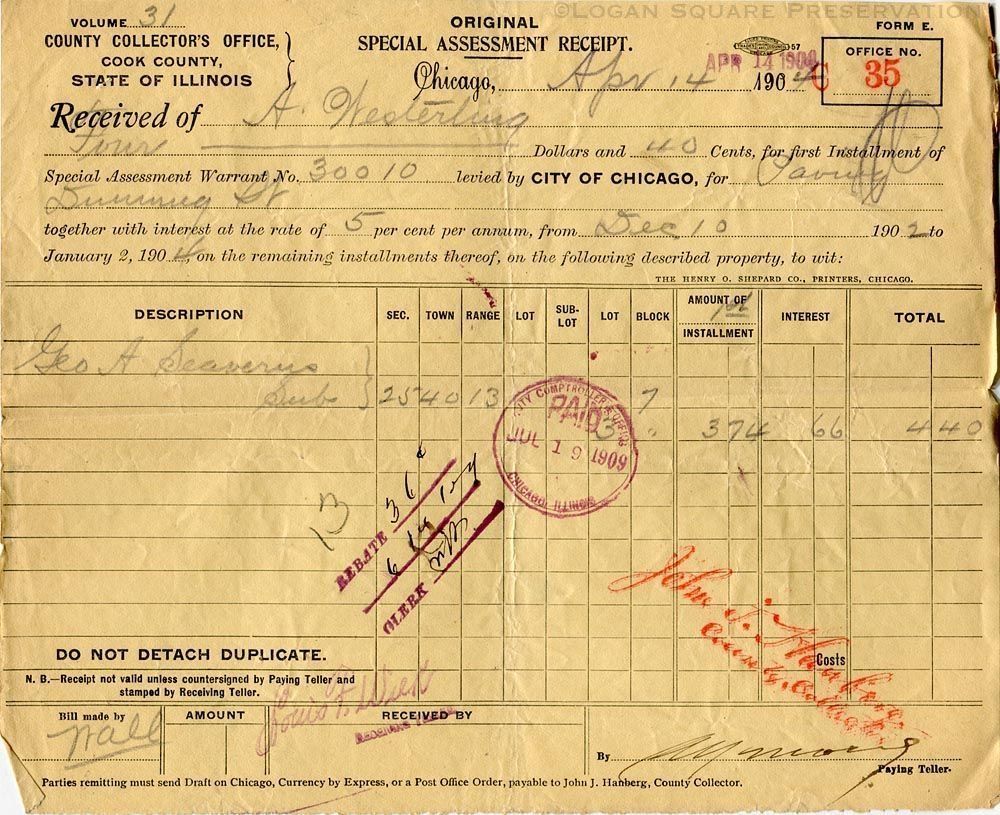 ©Logan Square Preservation
VOLUME 31
COUNTY COLLECTOR'S OFFICE,
COOK COUNTY,
STATE OF ILLINOIS
ORIGINAL
SPECIAL ASSESSMENT RECEIPT.
FORM E.
OFFICE No.
35
APR 14 190
Chicago, Apr 14 1904
Received of A. Westerling
Four Dollars and 40 Cents, for first Installment of
Special Assessment Warrant No. 30010 levied by CITY OF CHICAGO, for Paving
Dunning St
together with interest at the rate of 5 per cent per annum, from Dec 10 1902 to
January 2, 1904, on the remaining installments thereof, on the following described property, to wit:
THE HENRY O. SHEPARD CO., PRINTERS, CHICAGO.
DESCRIPTION SEC. TOWN RANGE LOT SUB-LOT LOT BLOCK AMOUNT OF 1st INSTALLMENT INTEREST TOTAL
Geo A Seaverns
Sub 25 40 13 7
3 " 3 74 66 4 40
CITY COMPTROLLER'S OFFICE
PAID
JUL 19 1909
CHICAGO ILLINOIS
13
REBATE 36c
CLERK
John J. Hanberg
County Collector
Costs
DO NOT DETACH DUPLICATE.
N. B.—Receipt not valid unless countersigned by Paying Teller and
stamped by Receiving Teller.
Bill made by
Wall
AMOUNT
RECEIVED BY
Louis F.
RECEIVING TELLER
By
Paying Teller.
Parties remitting must send Draft on Chicago, Currency by Express, or a Post Office Order, payable to John J. Hanberg, County Collector.